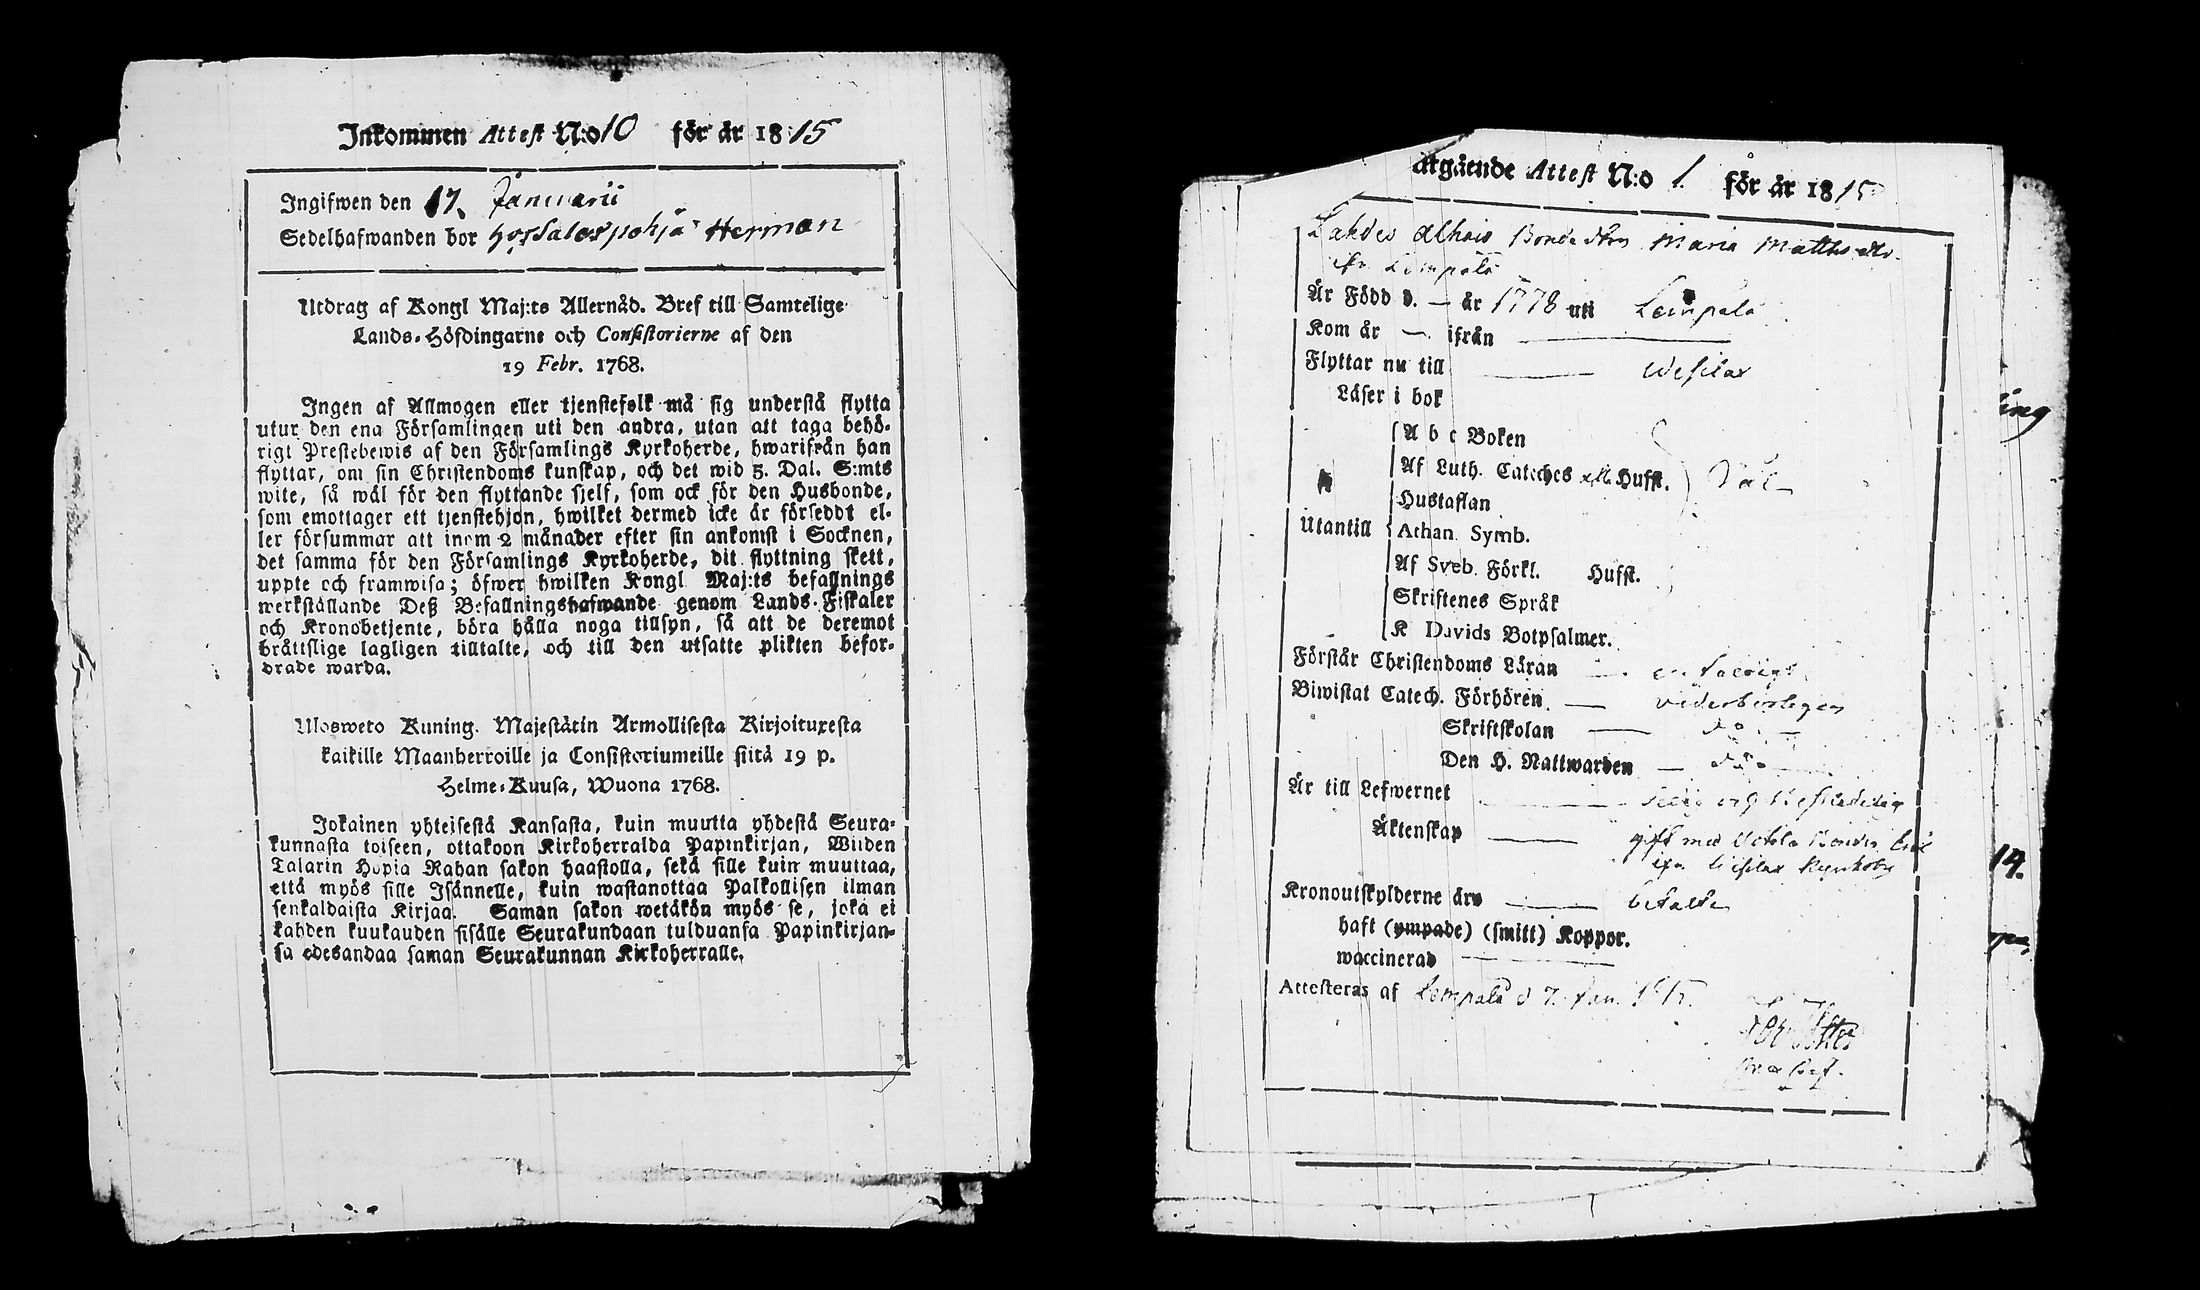 Inkommen Attest N:o 10 för år 1815
Ingifwen den 17. Januarii
Sedelhafwanden bor hos Salospohja Herman
Utdrag af Kongl Maj:ts Allernåd. Bref till Samtelige
Lands-Höfdingarne och Consistorierne af den
19 Febr. 1768.
Ingen af Allmogen eller tjenstefolk må sig understå flytta
utur den ena Församlingen uti den andra, utan att taga behö-
rigt Prestebewis af den Församlings Kyrkoherde, hwarifrån han
flyttar, om sin Christendoms kunskap, och det wid 5. Dal. S:mts
wite, så wäl för den flyttande sjelf, som ock för den Husbonde,
som emottager ett tjenstehjon, hwilket dermed icke är förseddt el-
ler försummar att inom 2 månader efter sin ankomst i Socknen,
det samma för den Församlings Kyrkoherde, dit flyttning skett,
uppte och framwisa; öfwer hwilken Kongl Maj:ts befallnings
werkställande Deß Befallningshafwande genom Lands-Fiskaler
och Kronobetjente, böra hålla noga tillsyn, så att de deremot
bråttslige lagligen tilltalte, och till den utsatte plikten befor-
drade warda.
Ulosweto Kuning. Majestätin Armollisesta Kirjoituxesta
kaikille Maanherroille ja Consistoriumeille siitä 19 p.
Helme-Kuusa, Wuona 1768.
Jokainen yhteisestä Kansasta, kuin muutta yhdestä Seura-
kunnasta toiseen, ottakoon Kirkoherralda Papinkirjan, Wiiden
Talarin Hopia Rahan sakon haastolla, sekä sille kuin muuttaa,
että myös sille Isännelle, kuin wastanottaa Palkollisen ilman
senkaldaista Kirjaa. Saman sakon wetäkön myös se, joka ei
kahden kuukauden sisälle Seurakundaan tulduansa Papinkirjan-
sa edesandaa saman Seurakunnan Kirkoherralle.
åtgående Attest N:o 1. för år 1815
Lahdes Bonde Maria Matths
ifr. Lempälä
Är Född d. — år 1778 uti Lempälä
Kom år — ifrån
Flyttar nu till Wesilax
Läser i bok
Utantill
A b c Boken
Af Luth. Cateches Hufst.
Hustaflan
Athan Symb.
Af Sveb. Förkl. Hufst.
Skriftenes Språk
K Davids Botpsalmer.
Förstår Christendoms Läran
Biwistat Catech. Förhören. — vederbörligen
Skriftskolan — do
Den H. Nattwarden — do
Är till Lefwernet
Äktenskap — gift med Bonden
ifr. Wesilax
Kronoutskylderne äro — betalte
haft (ympade) (smitt) Koppor.
waccinerad
Attesteras af Lempälä d 7. Jan. 1815.
ing
14.